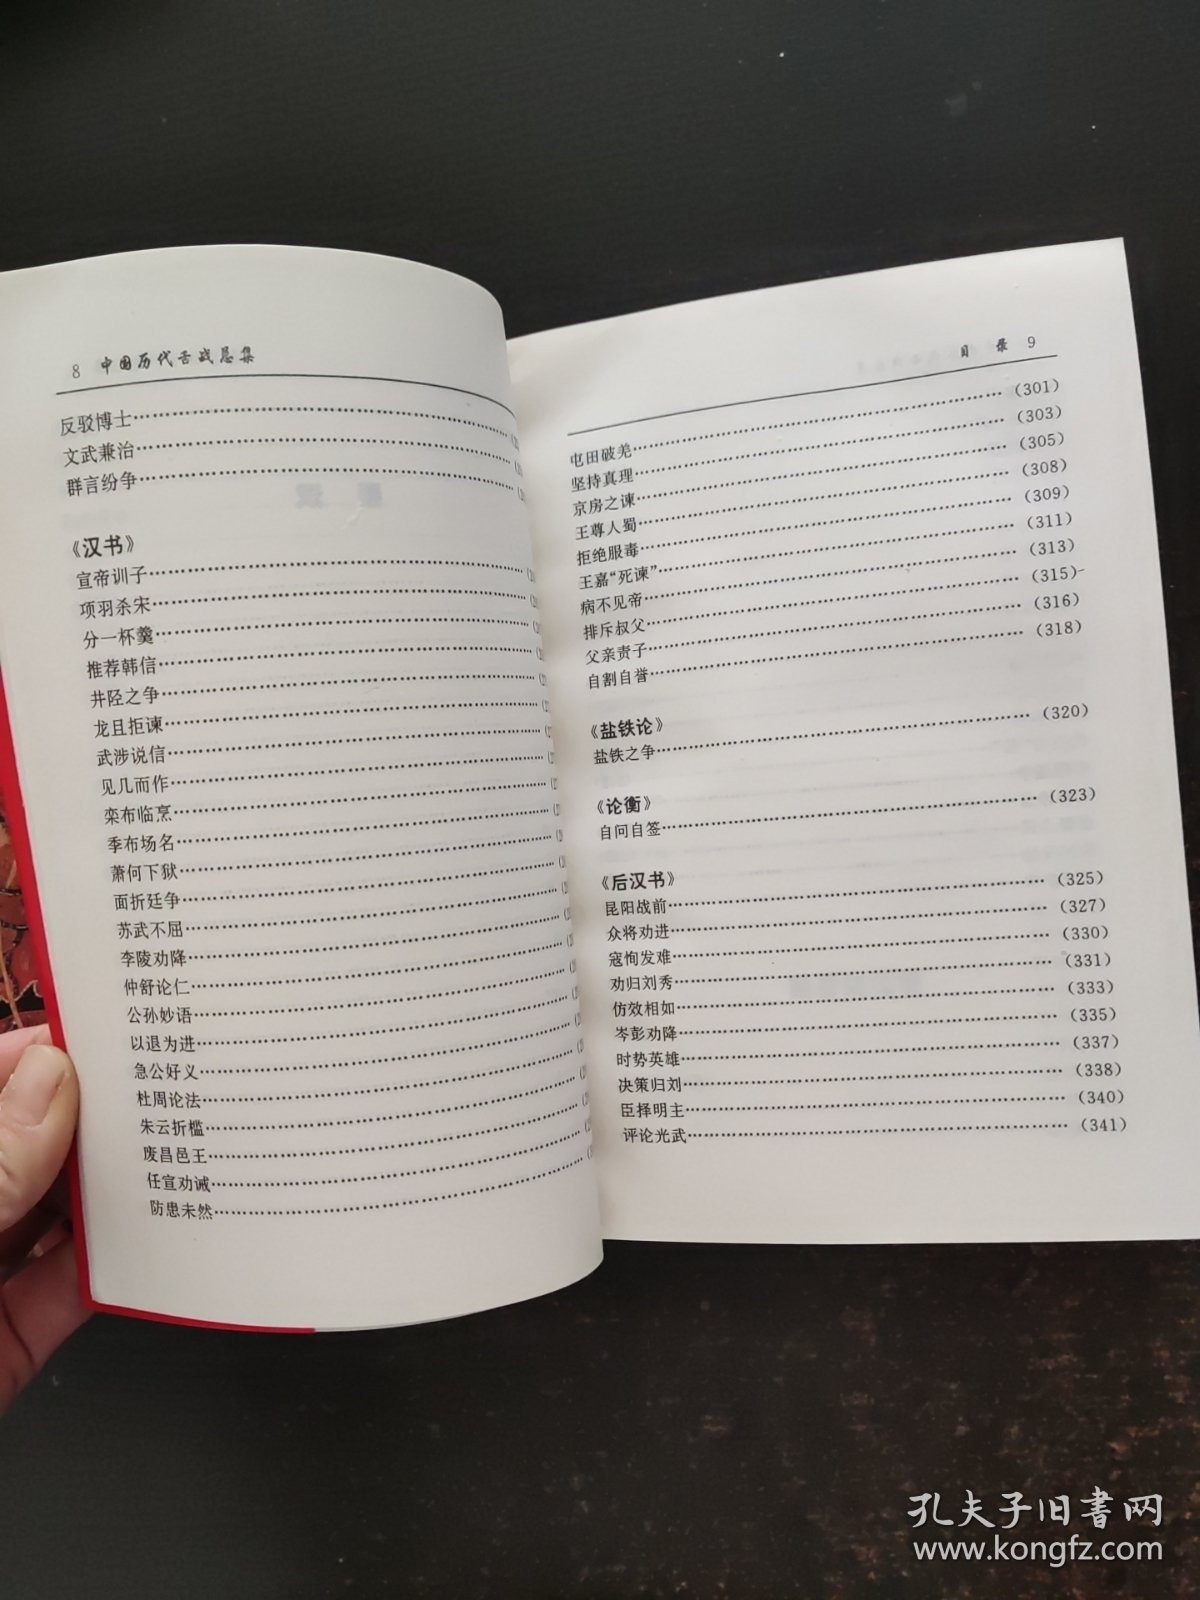 8 中国历代舌战总集
反驳博士
文武兼治
群言纷争
《汉书》
宣帝训子
项羽杀宋
分一杯羹
推荐韩信
井陉之争
龙且拒谏
武涉说信
见几而作
栾布临烹
季布场名
萧何下狱
面折廷争
苏武不屈
李陵劝降
仲舒论仁
公孙妙语
以退为进
急公好义
杜周论法
朱云折槛
废昌邑王
任宣劝诫
防患未然
目 录 9
屯田破羌……(301)
坚持真理……(303)
京房之谏……(305)
王尊人蜀……(308)
拒绝服毒……(309)
王嘉“死谏”……(311)
病不见帝……(313)
排斥叔父……(315)
父亲责子……(316)
自割自誉……(318)
《盐铁论》
盐铁之争……(320)
《论衡》
自问自签……(323)
《后汉书》
昆阳战前……(325)
众将劝进……(327)
寇恂发难……(330)
劝归刘秀……(331)
仿效相如……(333)
岑彭劝降……(335)
时势英雄……(337)
决策归刘……(338)
臣择明主……(340)
评论光武……(341)
孔夫子旧书网
www.kongfz.com